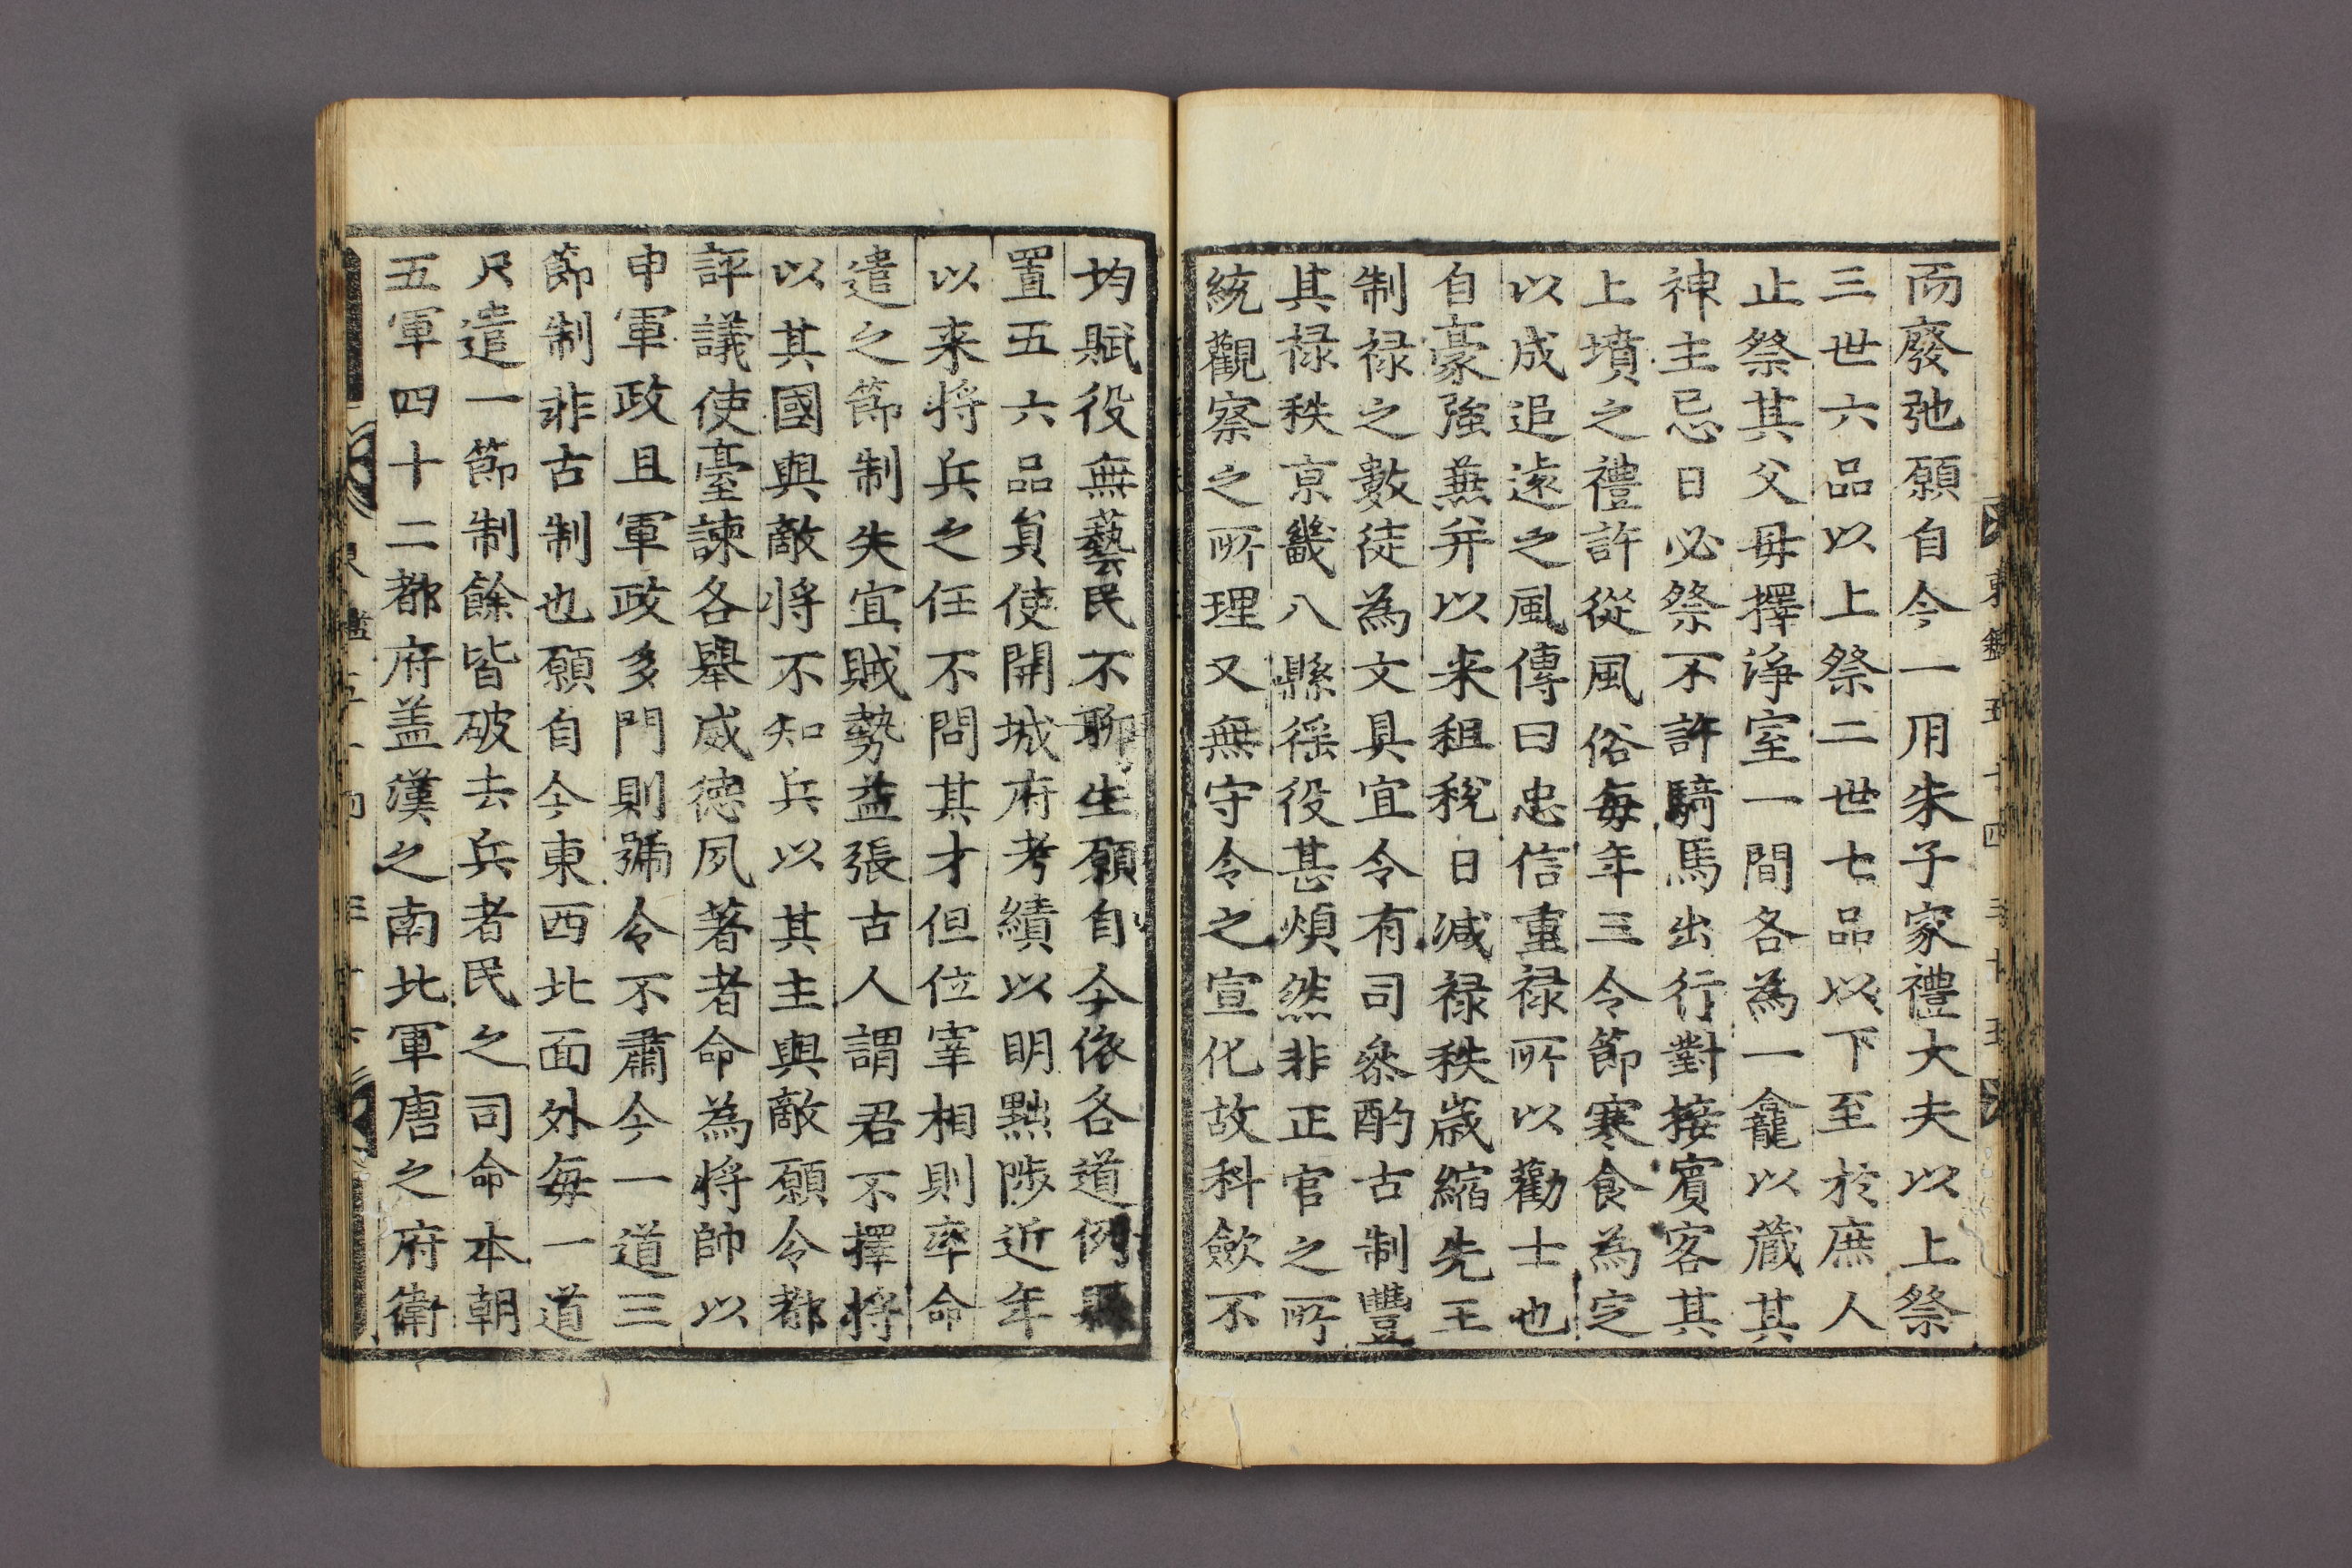 而廢弛願自今一用朱子家禮大夫以上祭
三世六品以上祭二世七品以下至於庶人
止祭其父母擇淨室一間各為一龕以蔵其
神主忌日必祭不許騎馬出行對接賓客其
上墳之禮許從風俗每年三令節寒食為定
以成追遠之風傳曰忠信重禄所以勸士也
自豪強兼并以来租稅日減禄秩歳縮先王
制禄之數徒為文具宜令有司叅酌古制豐
其禄秩京畿八縣徭役甚煩然非正官之所
統觀察之所理又無守令之宣化故科歛不
均賦役無藝民不聊生願自今依各道例縣
置五六品貟使開城府考績以明黜陟近年
以来将兵之任不問其才但位宰相則率命
遣之節制失宜賊勢益張古人謂君不擇将
以其國與敵将不知兵以其主與敵願令都
評議使臺諫各舉威德夙著者命為将帥以
申軍政且軍政多門則號令不肅今一道三
節制非古制也願自今東西北面外每一道
只遣一節制餘皆破去兵者民之司命本朝
五軍四十二都府盖漢之南北軍唐之府衛